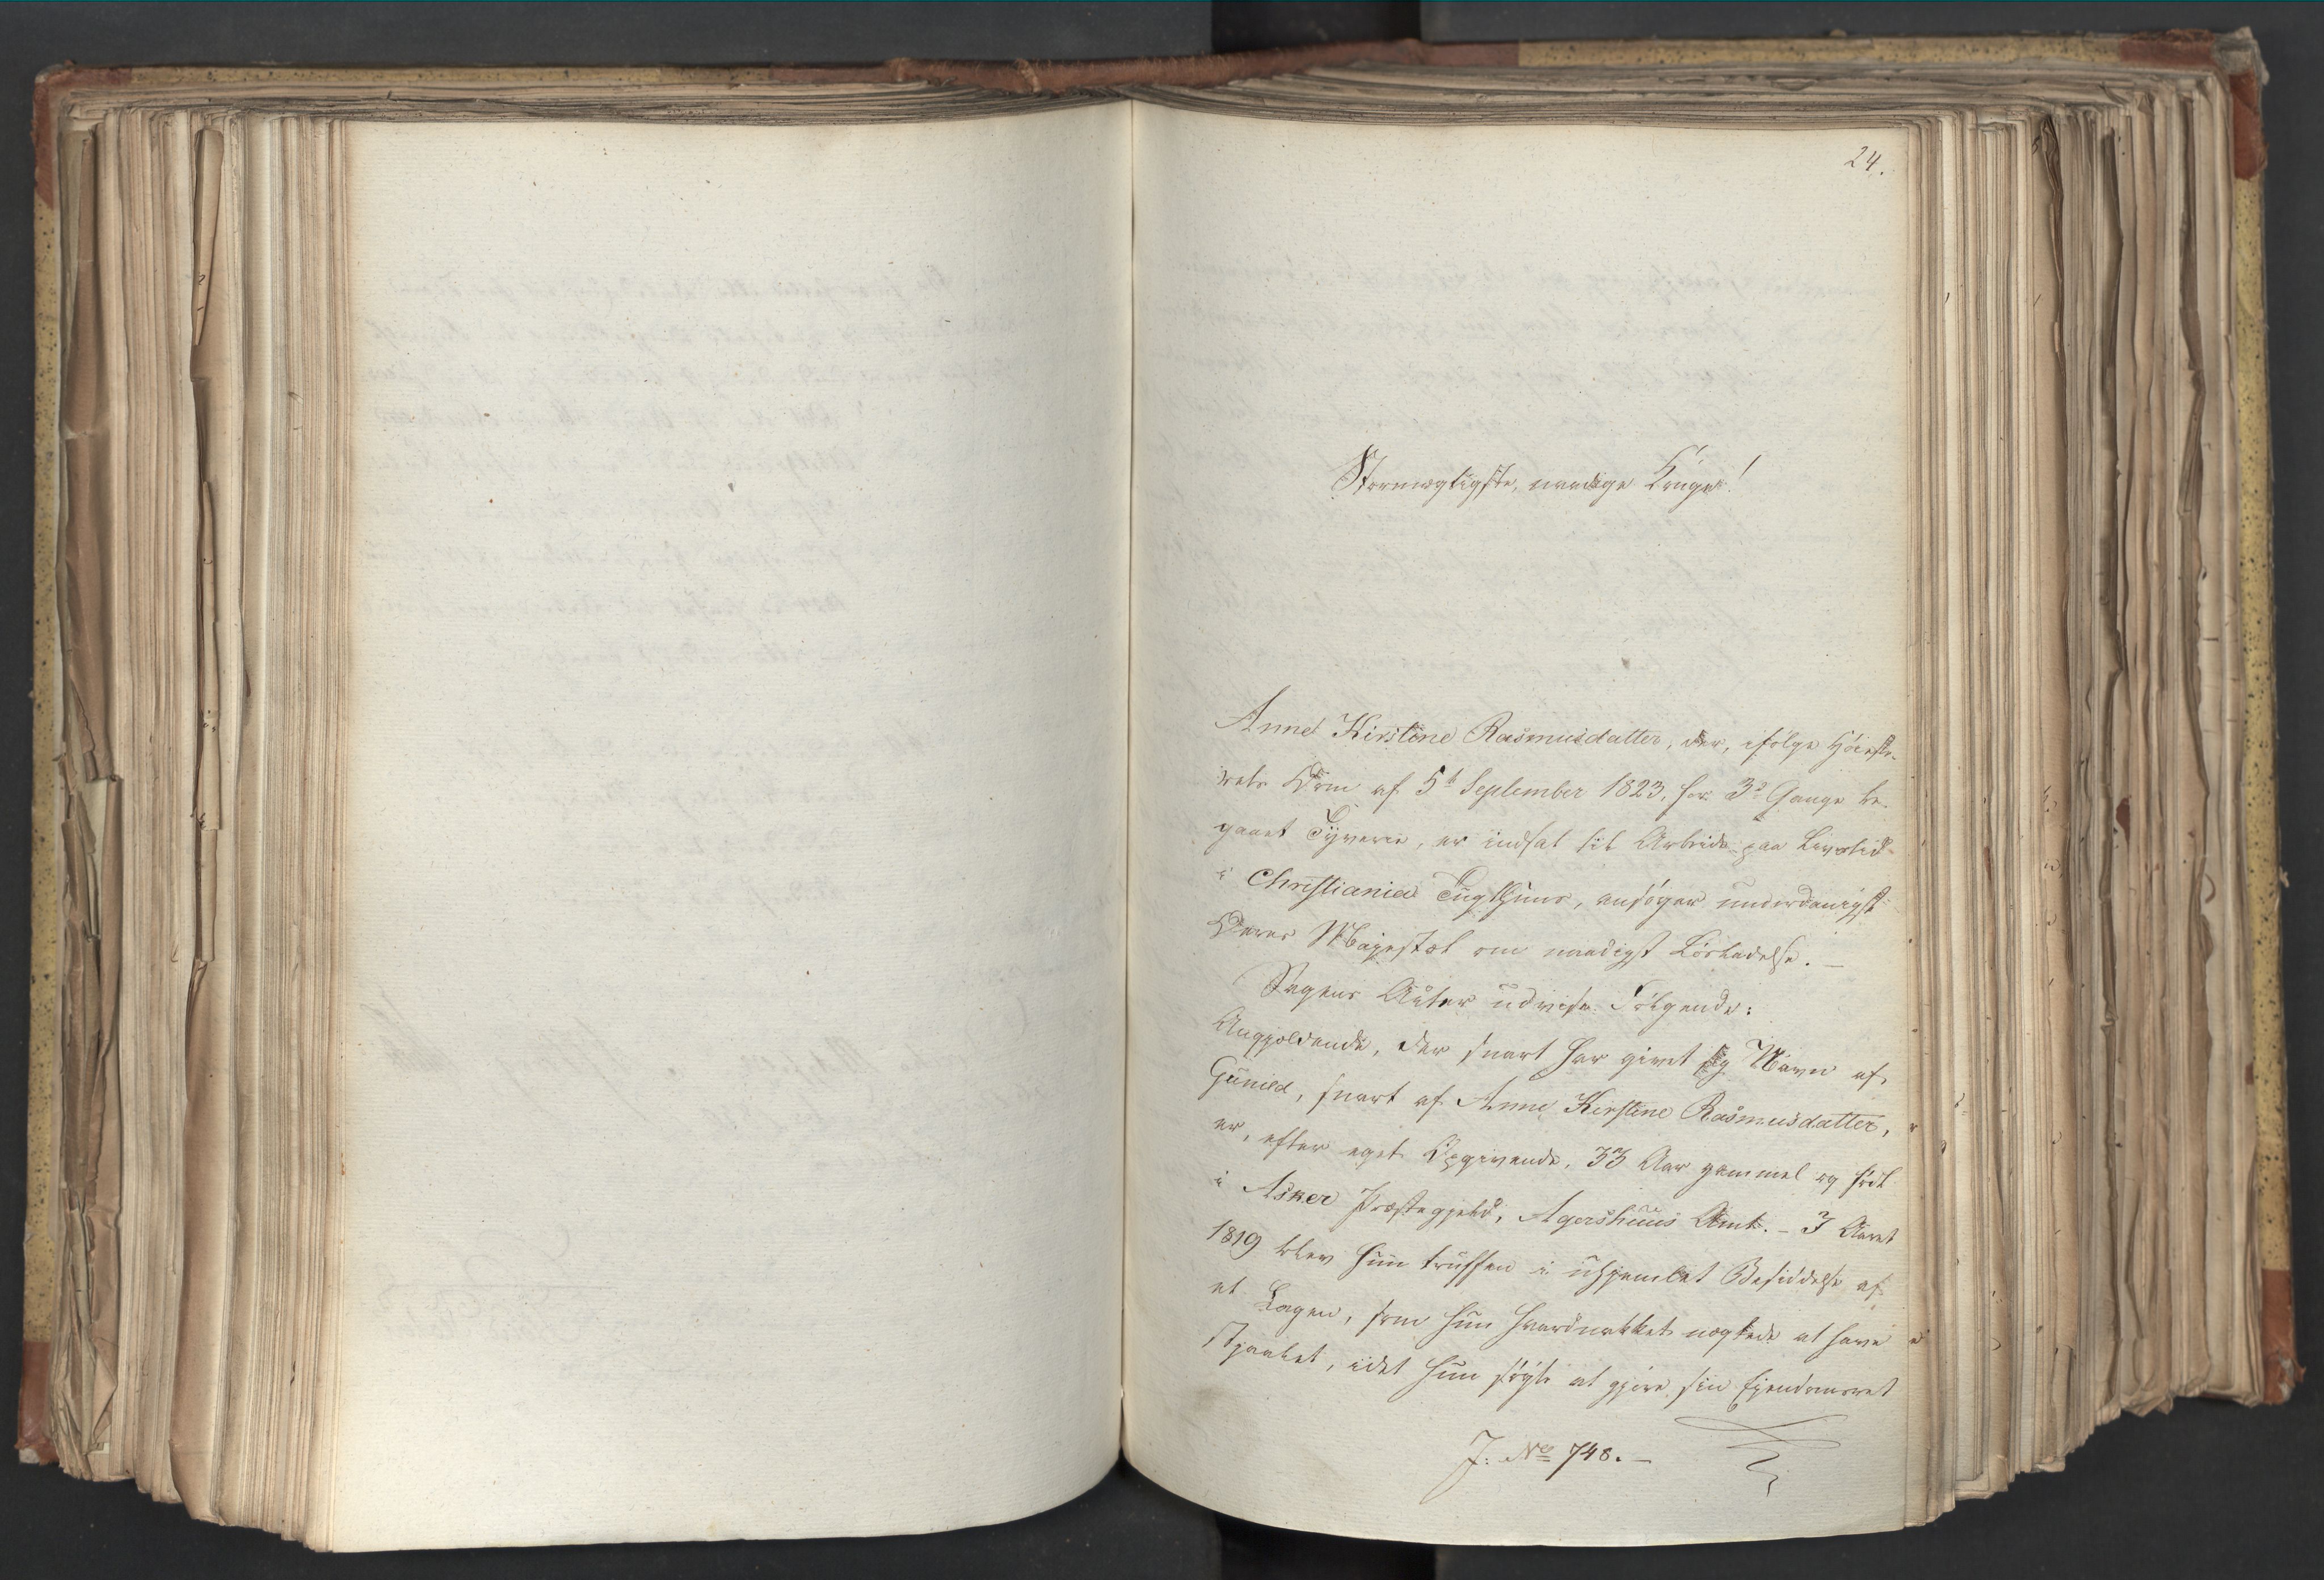 24.
Stormægtigste, naadige Konge!
Anne Kirstine Rasmusdatter, der, ifølge Høieste-
rets Dom af 5t September 1823, for 3de Gange be-
gaaet Tyverie, er indsat til Arbeide paa Livstid
i Christiania Tugthuus, ansøger underdanigst
Deres Majestæt om naadigst Løsladelse. —
Sagens Akter udvise Følgende:
Angjældende, der snart har givet sig Navn af
Gunild, snart af Anne Kirstine Rasmusdatter,
er, efter eget Opgivende, 33 Aar gammel og født
i Asker Præstegjeld, Agershuus Amt. – I Aaret
1819 blev hun truffen i uhjemlet Besiddelse af
et Lagen, som hun haardnakket nægtede at have
stjaalet, idet hun søgte at gjøre sin Ejendomsret
J. No 748. —